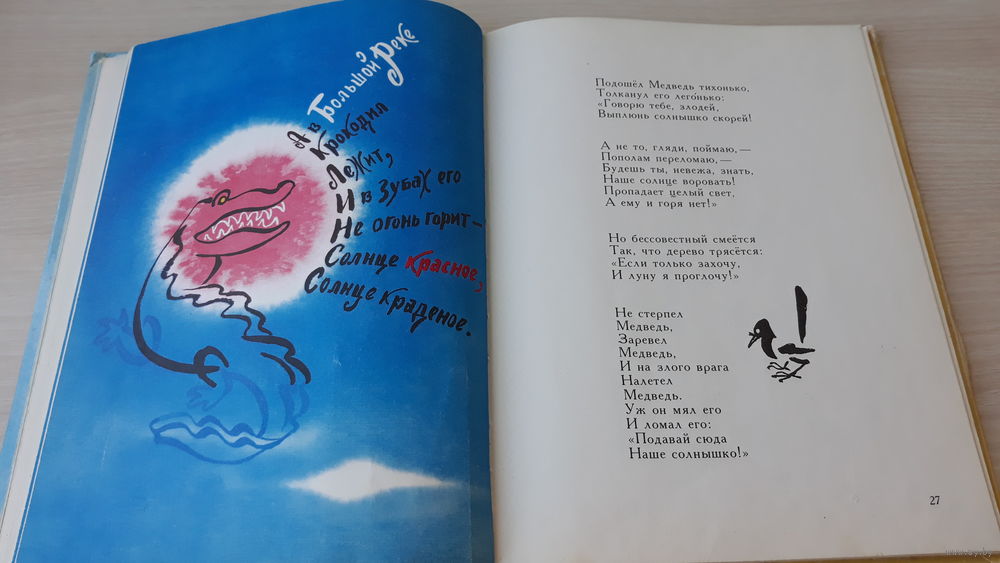 А в Большой Реке
Крокодил
Лежит,
И в Зубах его
Не огонь горит —
Солнце красное,
Солнце краденое.
Подошёл Медведь тихонько,
Толканул его легонько:
«Говорю тебе, злодей,
Выплюнь солнышко скорей!
А не то, гляди, поймаю, —
Пополам переломаю, —
Будешь ты, невежа, знать,
Наше солнце воровать!
Пропадает целый свет,
А ему и горя нет!»
Но бессовестный смеётся
Так, что дерево трясётся:
«Если только захочу,
И луну я проглочу!»
Не стерпел
Медведь,
Заревел
Медведь,
И на злого врага
Налетел
Медведь.
Уж он мял его
И ломал его:
«Подавай сюда
Наше солнышко!»
27